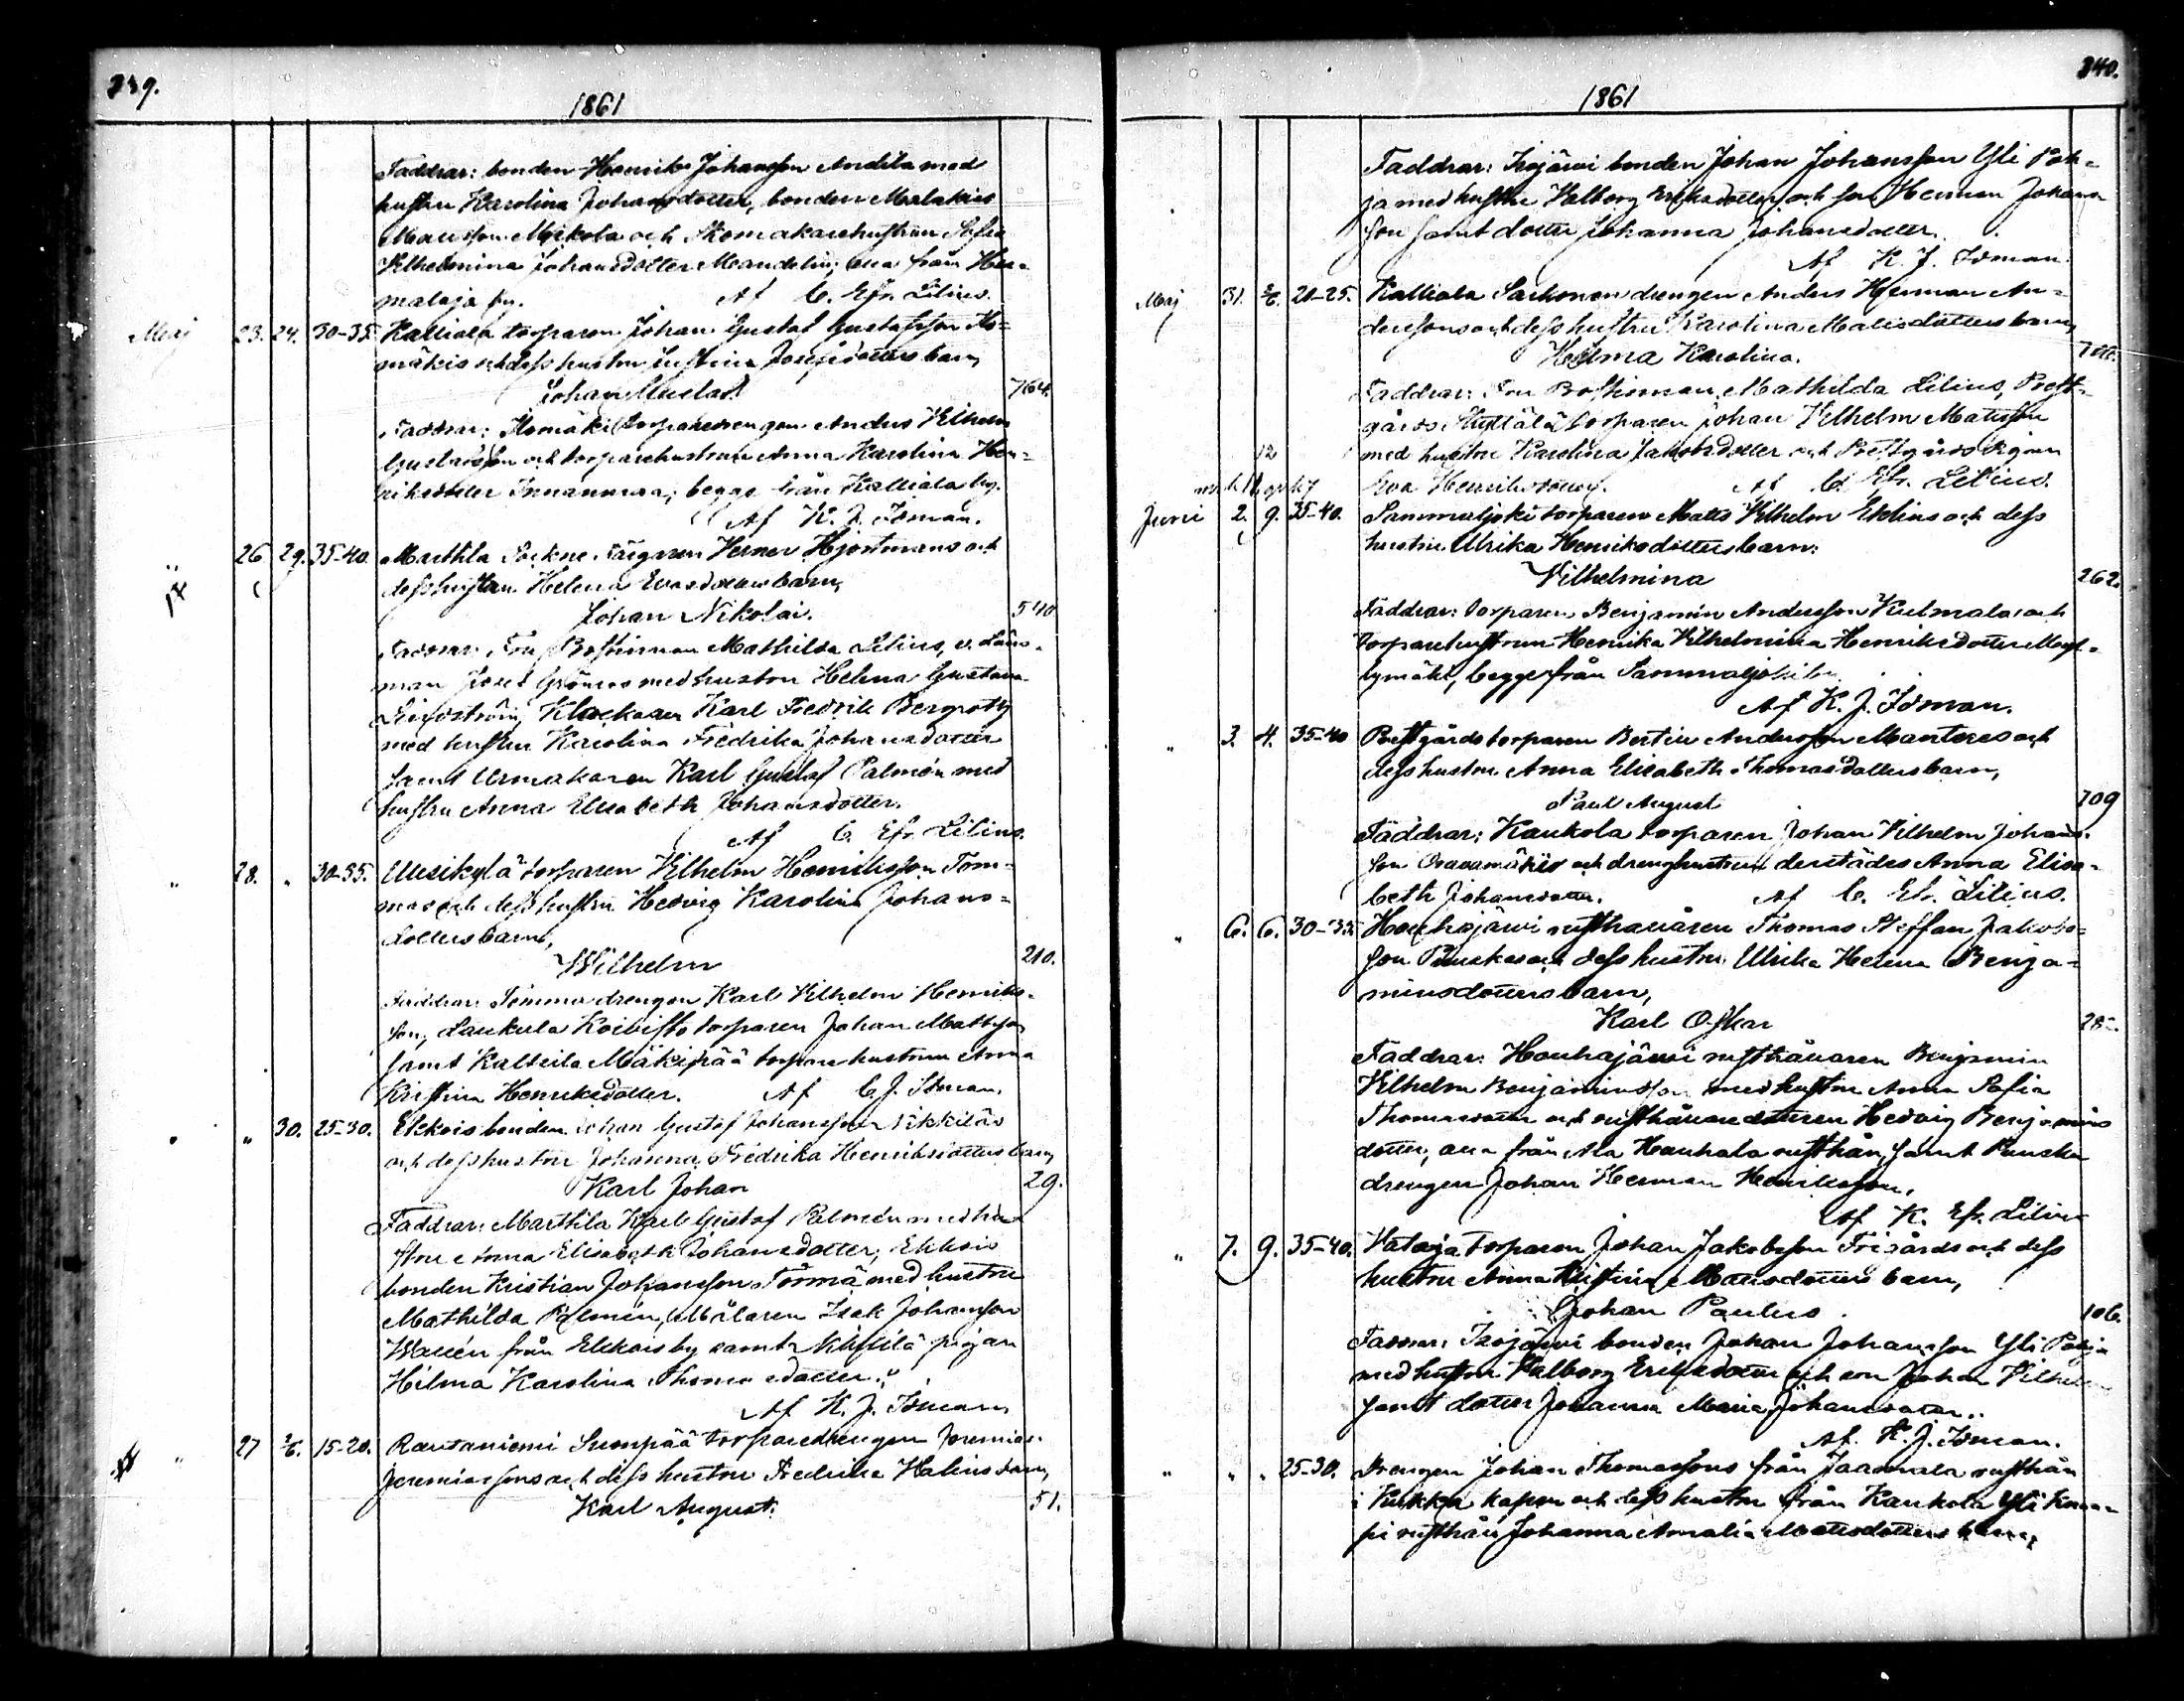 239.
1861
Faddrar: bonden Henrik Johansson Anttila med
hustru Karolina Johansdotter, bonden Malakias
Mattsson Mikola och Skomakarehustrun Sofia
Vilhelmina Johansdotter Mandelin, alla från
maloja by. Af C. Efr. Lilius.
Maj 23. 24. 30-35. Kalliala torparen Johan Gustaf Gustafsson
mäkis och dess hustru Justina Josefsdotters barn,
Johan Gustaf 764.
Faddrar: torparedrengen Anders Vilhelm
Gustafsson och torparehustrun Anna Karolina Hen-
riksdotter Innanmaa, begge från Kalliala by.
Af K. J. Idman.
" 26 29. 35-40. Marttila Sockne Färgaren Herner Hjortmans och
dess hustru Helena Evasdotters barn,
Johan Nikolai. 540
Faddrar: Fru Prostinnan Mathilda Lilius, v. Läns-
man Josef Grönroos med hustru Helena Gustava
Lindström, Klockaren Karl Fredrik Bergroth
med hustru Karolina Fredrika Johansdotter
samt Urmakaren Karl Gustaf Palmén med
hustru Anna Elisabeth Johansdotter.
Af C. Efr. Lilius.
" 28. " 30-35. Uusikylä torparen Vilhelm Henriksson Töm-
mas och dess hustru Hedvig Karolina Johans-
dotters barn,
Wilhelm 210.
Faddrar: drengen Karl Vilhelm Henriks-
son, Laukula Koivisto torparen Johan Mattsson
samt Kaltsila Mäkipää torparehustrun Anna
Kristina Henriksdotter. Af C. J. Idman.
" " 30. 25-30. Ekkois bonden Johan Gustaf Johansson Nikkiläs
och dess hustru Johanna Fredrika Henriksdotters barn,
Karl Johan 29.
Faddrar: Marttila Karl Gustaf Palmén med hu-
stru Anna Elisabeth Johansdotter, Ekkois
bonden Kristian Johansson Törmä med hustru
Mathilda Palmén, Målaren Isak Johansson
från Ekkois by samt Nikkilä pigan
Hilma Karolina Thomasdotter.
Af K. J. Idman
" 27 2/6. 15-20. Rautaniemi Suonpää torparedrengen Jeremias
Jeremiassons och dess hustru Fredrika Halins barn,
Karl August. 51.
340.
1861
Faddrar: Isojärvi bonden Johan Johansson Yli Poh-
ja med hustru Valborg Eriksdotter och son Herman Johans-
son samt dotter Johanna Johansdotter.
Af K. J. Idman.
Maj 31. 2/6. 20-25. Kalliala drengen Anders Herman An-
derssons och dess hustru Karolina Matisdotters barn,
Helma Karolina.
Faddrar: Fru Prostinnan Mathilda Lilius, Prest-
gårds torparen Johan Vilhelm Matisson
12 med hustru Karolina Jakobsdotter och Prestgårds pigan
Eva Henriksdotter. Af C. Efr. Lilius.
Juni 2. 9. 35-40. Sammaljoki torparen Matts Vilhelm Eklins och dess
hustru Ulrika Henriksdotters barn:
Vilhelmina 262.
Faddrar: torparen Benjamin Andersson Kulmala och
torparehustrun Henrika Vilhelmina Henriksdotter
lymäki, begge från Sammaljoki by.
Af K. J. Idman.
" 3. 4. 35-40 Prestgårdstorparen Bertin Andersson Manteres och
dess hustru Anna Elisabeth Thomasdotters barn,
Paul August 709
Faddrar: Kaukola torparen Johan Vilhelm Johans-
son Oravamäkis och drenghustrun derstädes Anna Elisa-
beth Johansdotter. Af C. Efr. Lilius.
" 6. 6. 30-35. Houhajärvi rusthållaren Thomas Steffan Jakobs-
son Ruuskas och dess hustru Ulrika Helena Benja-
minsdotters barn,
Karl Oskar
Faddrar: Houhajärvi rusthållaren Benjamin
Vilhelm Benjaminsson med hustru Anna Sofia
Thomasdotter och rusthållaredottren Hedvig Benjamins-
dotter, alla från Ala Haukala rusthåll, samt Ruuska
drengen Johan Herman Henriksson,
Af K. Efr. Lilius
" 7. 9. 35-40. Vataja torparen Johan Jakobsson Frigårds och dess
hustru Anna Kristina Mattsdotters barn,
Johan Paulus 106.
Faddrar: Isojärvi bonden Johan Johansson Yli Pohja
med hustru Valborg Eriksdotter och son Johan Vilhelm
samt dotter Johanna Maria Johansdotter.
Af. K. J. Idman.
" " " 25-30. Drengen Johan Thomassons från Jaamala rusthåll
i Kiikka kapell och dess hustru från Kaukola Yli
pi rusthåll Johanna Amalia Matisdotters barn,